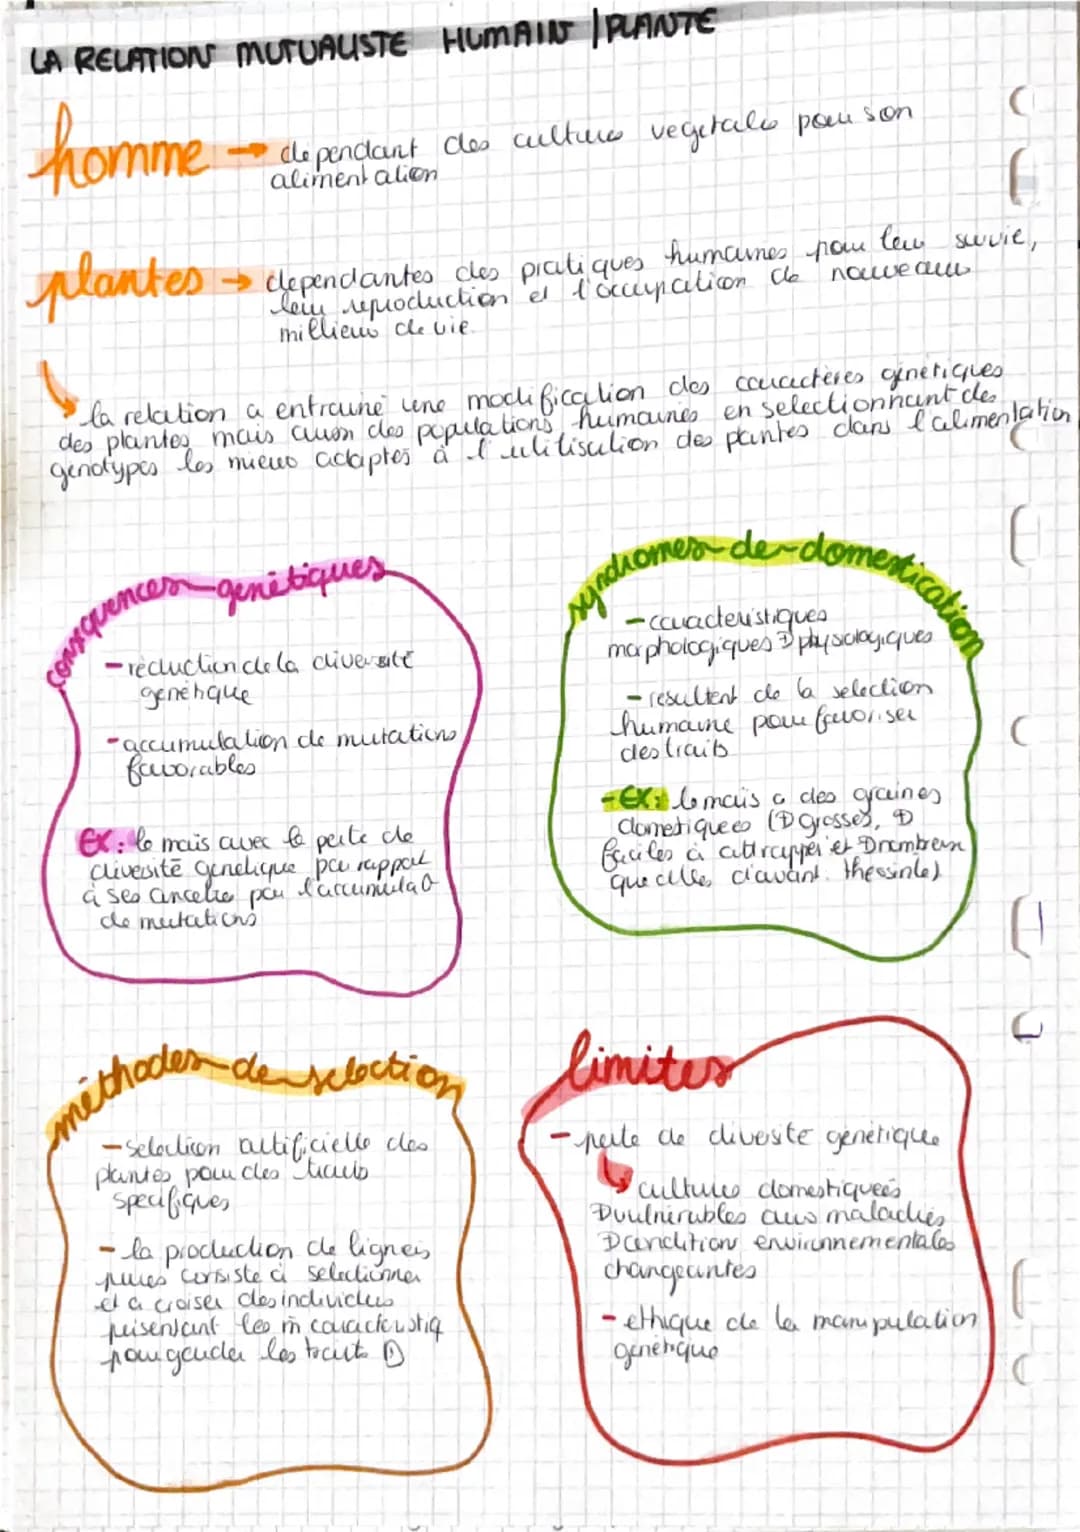 LA RELATION MUTUALISTE HUMAIN / PLANTE
homme → dependant des cultures vegetales pour son
alimentation
plantes → dependantes des pratiques humaines pour leur survie,
leur reproduction et l'occupation de nouveaux
millieux de vie.
la relation a entrainé une modification des caractères génétiques
des plantes mais aussi des populations humaines en selectionnant des
génotypes les mieux adaptés à l'utilisation des plantes dans l'alimentation
consquences genétiques
- réduction de la diversité
genétique
- accumulation de mutations
favorables
EX: le maïs avec la perte de
diversité génétique par rapport
à ses ancetre par l'accumulat°
de mutations
syndromes de domestication
- caracteristiques
morphologiques physiologiques
- resultent de la selection
humaine pour favoriser
des traits
- EX: le mais a des graines
domestiquees (⊕ grosses, ⊕
faciles à attrapper et ⊕ nombreux
que celles d'avant.
méthodes de selection
- selection artificielle des
plantes pour des traits
specifiques
- la production de lignées
pures consiste à selectionner
et à croiser des individus
présentant les m̂ caracteristiq
pour garder les traits ⊕
limites
- perte de diversite génétique
cultures domestiqueés
⊕ vulnérables aux maladies
⊕ condition environnementales
changeantes
- ethique de la manipulation
genétique